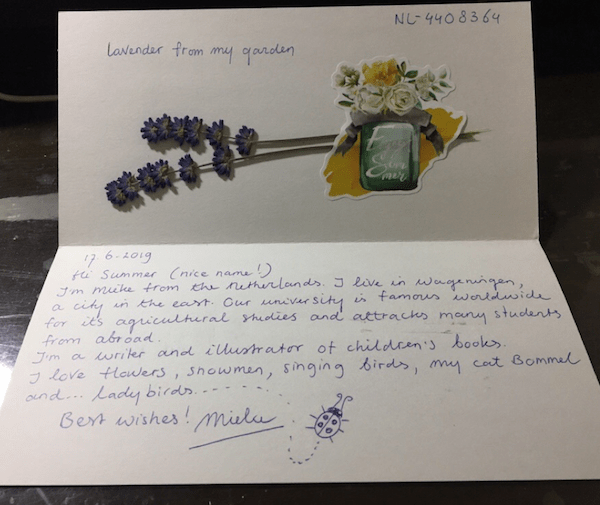 NL-4408364
lavender from my garden
Enjoy
Summer
17.6.2019
Hi Summer (nice name!)
I'm Mieke from the Netherlands. I live in Wageningen,
a city in the east. Our university is famous worldwide
for its agricultural studies and attracks many students
from abroad.
I'm a writer and illustrator of children's books.
I love flowers, snowmen, singing birds, my cat Bommel
and... ladybirds.......
Best wishes! Mieke